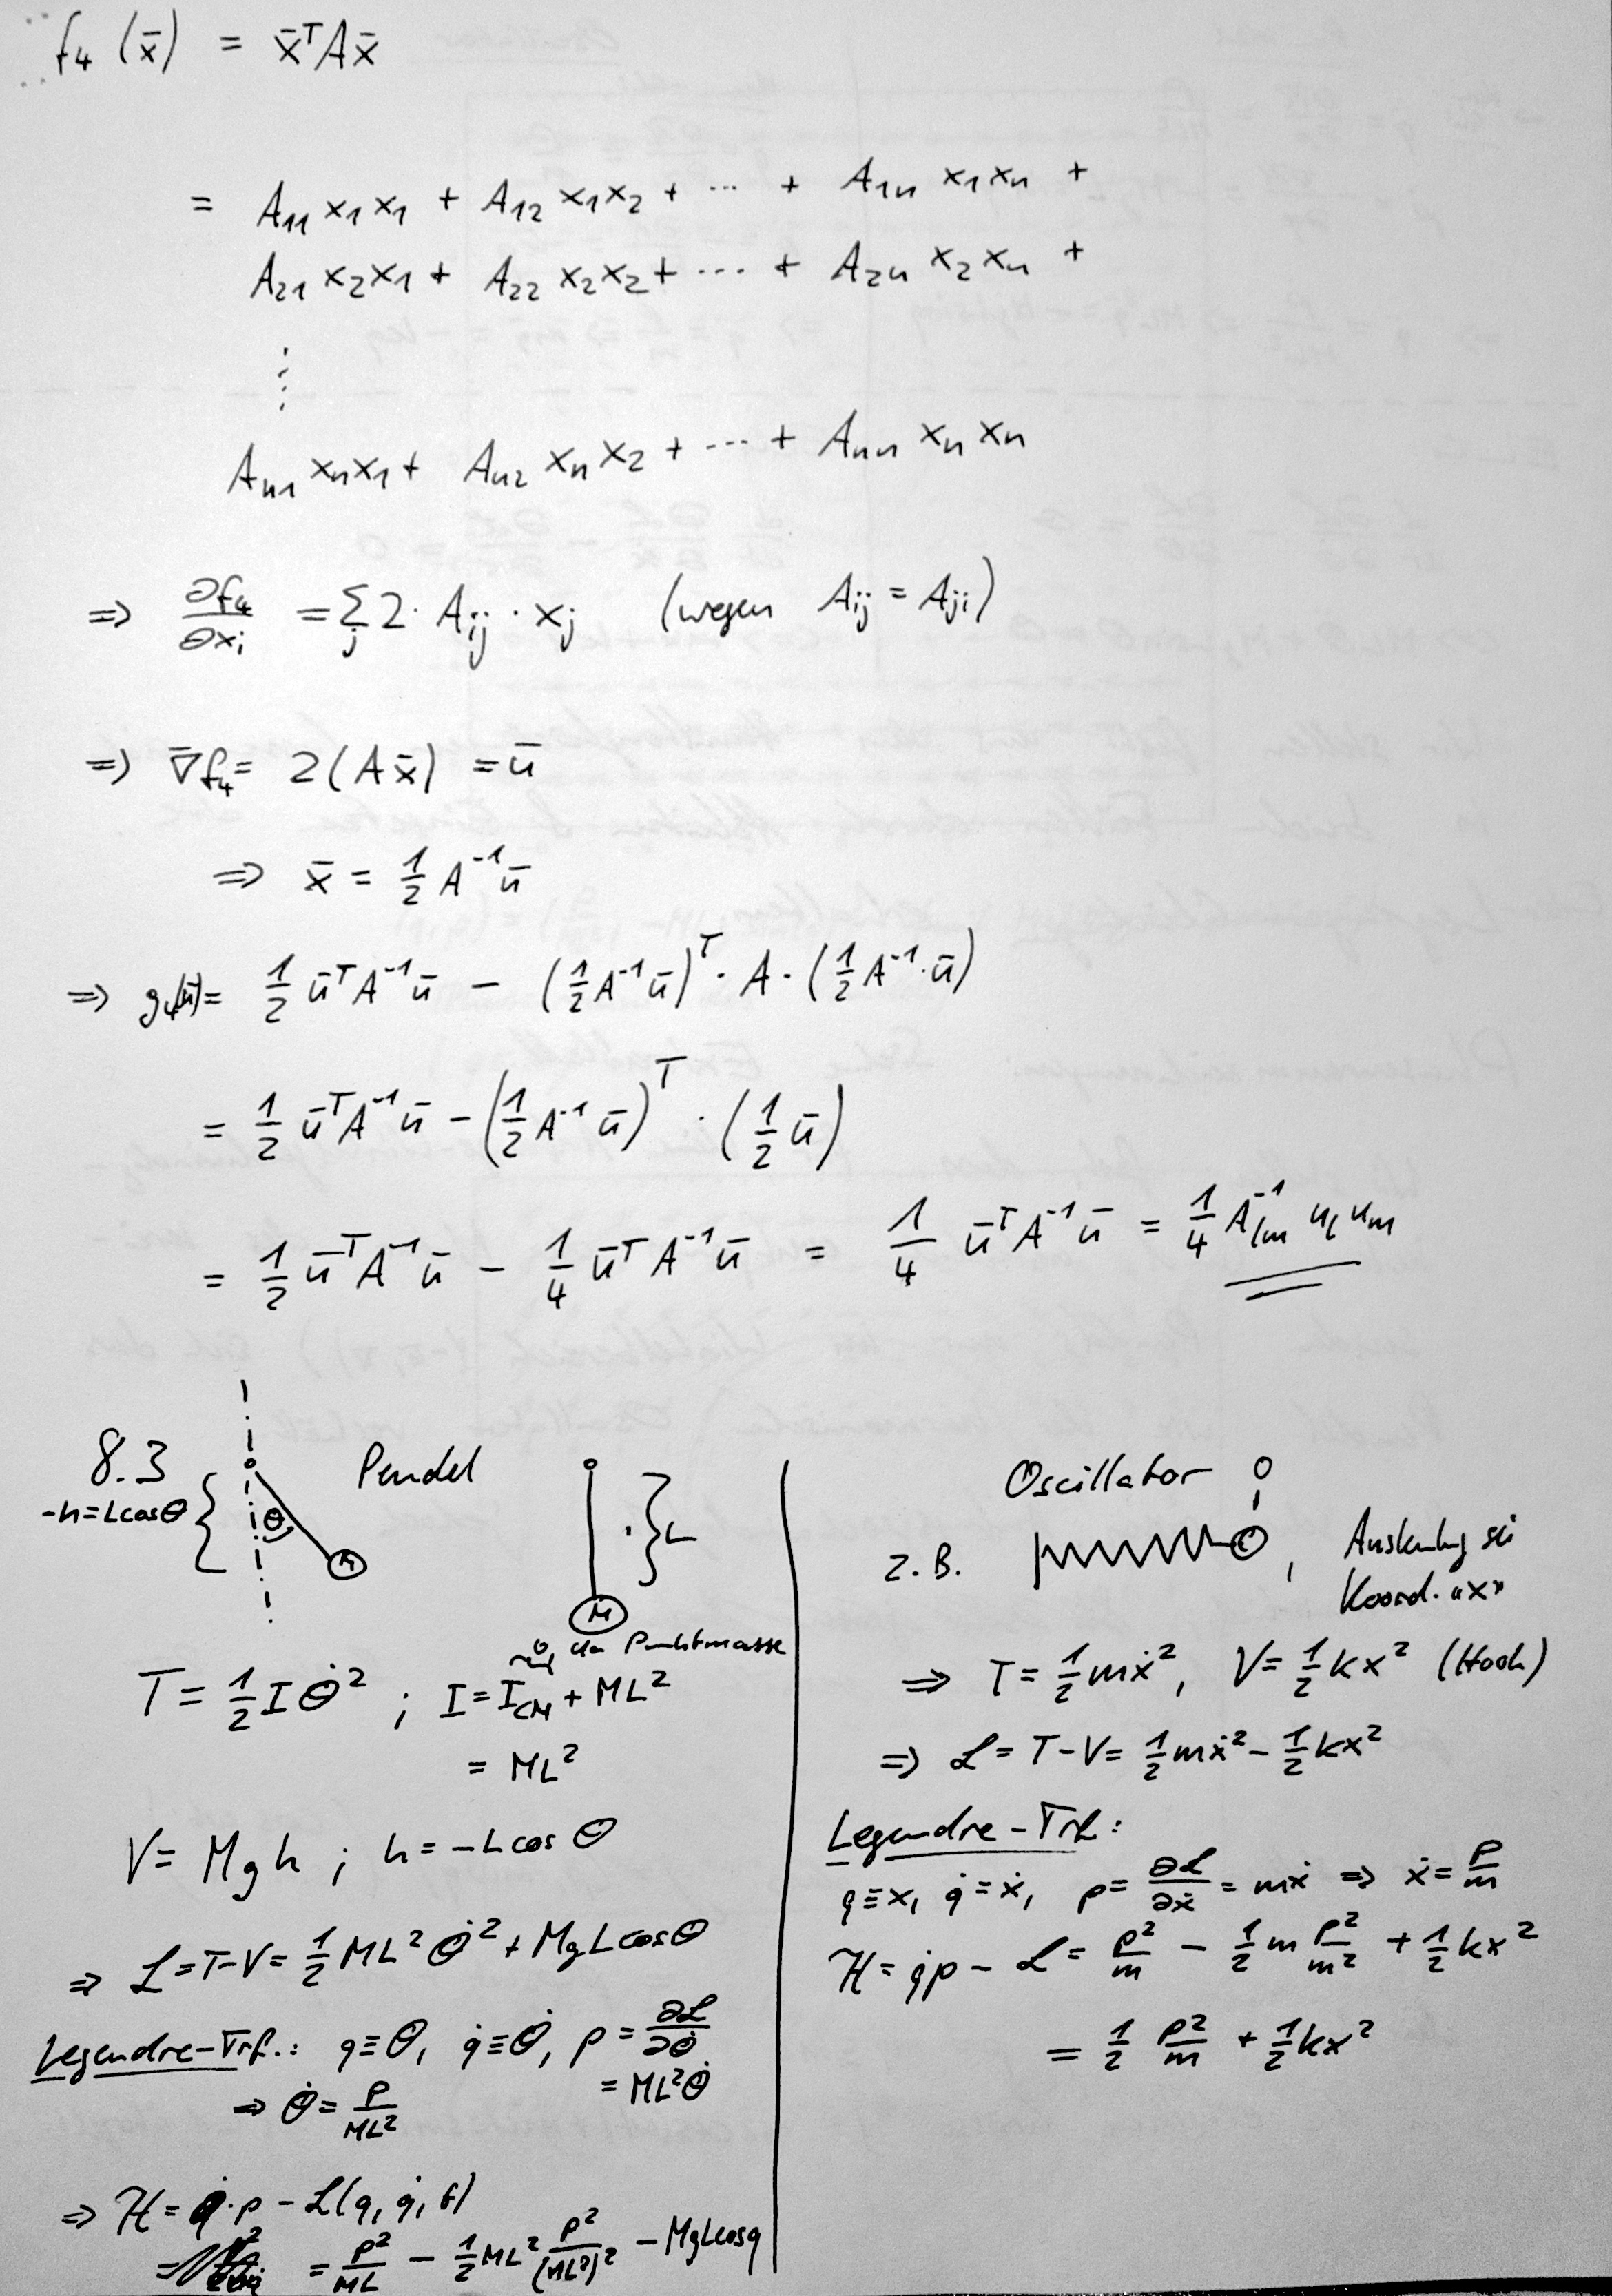 f₄ (x̄) = x̄ᵀAx̄
= A₁₁ x₁x₁ + A₁₂ x₁x₂ + ... + A₁ₙ x₁xₙ +
A₂₁ x₂x₁ + A₂₂ x₂x₂ + ... + A₂ₙ x₂xₙ +
⋮
Aₙ₁ xₙx₁ + Aₙ₂ xₙx₂ + ... + Aₙₙ xₙxₙ
=> ∂f₄/∂xᵢ = Σⱼ 2 · Aᵢⱼ · xⱼ (wegen Aᵢⱼ = Aⱼᵢ)
=> ∇̄f₄ = 2(Ax̄) = ū
=> x̄ = 1/2 A⁻¹ū
=> g₄(ū) = 1/2 ūᵀA⁻¹ū − (1/2 A⁻¹ū)ᵀ · A · (1/2 A⁻¹·ū)
= 1/2 ūᵀA⁻¹ū − (1/2 A⁻¹ū)ᵀ · (1/2 ū)
= 1/2 ūᵀA⁻¹ū − 1/4 ūᵀA⁻¹ū = 1/4 ūᵀA⁻¹ū = 1/4 A⁻¹ₗₘ uₗuₘ
8.3 Pendel
-h=Lcosθ
θ
M
L
M
T = 1/2 I θ̇² ; I = I_CM + ML²
0, da Punktmasse
= ML²
V = Mgh ; h = −Lcosθ
=> ℒ = T−V = 1/2 ML²θ̇² + MgLcosθ
Legendre-Trf.: q≡θ, q̇≡θ̇, p = ∂ℒ/∂θ̇
= ML²θ̇
=> θ̇ = p/ML²
=> ℋ = q̇·p − ℒ(q, q̇, t)
= p²/ML − 1/2 ML² p²/(ML²)² − MgLcosq
Oscillator
z.B. , Auslenkung sei
Koord. "x"
=> T = 1/2 mẋ², V = 1/2 kx² (Hook)
=> ℒ = T−V = 1/2 mẋ² − 1/2 kx²
Legendre-Trf.:
q≡x, q̇≡ẋ, p = ∂ℒ/∂ẋ = mẋ => ẋ = p/m
ℋ = q̇p − ℒ = p²/m − 1/2 m p²/m² + 1/2 kx²
= 1/2 p²/m + 1/2 kx²